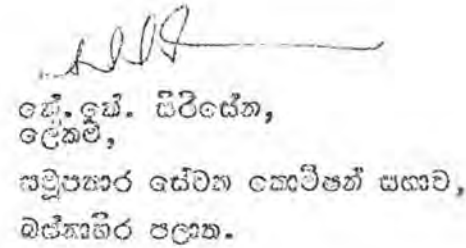 කේ.කේ. සිරිසේන,
ලේකම්,
සමූපකාර සේවක කොමිෂන් සභාව,
බස්නාහිර පලාත.